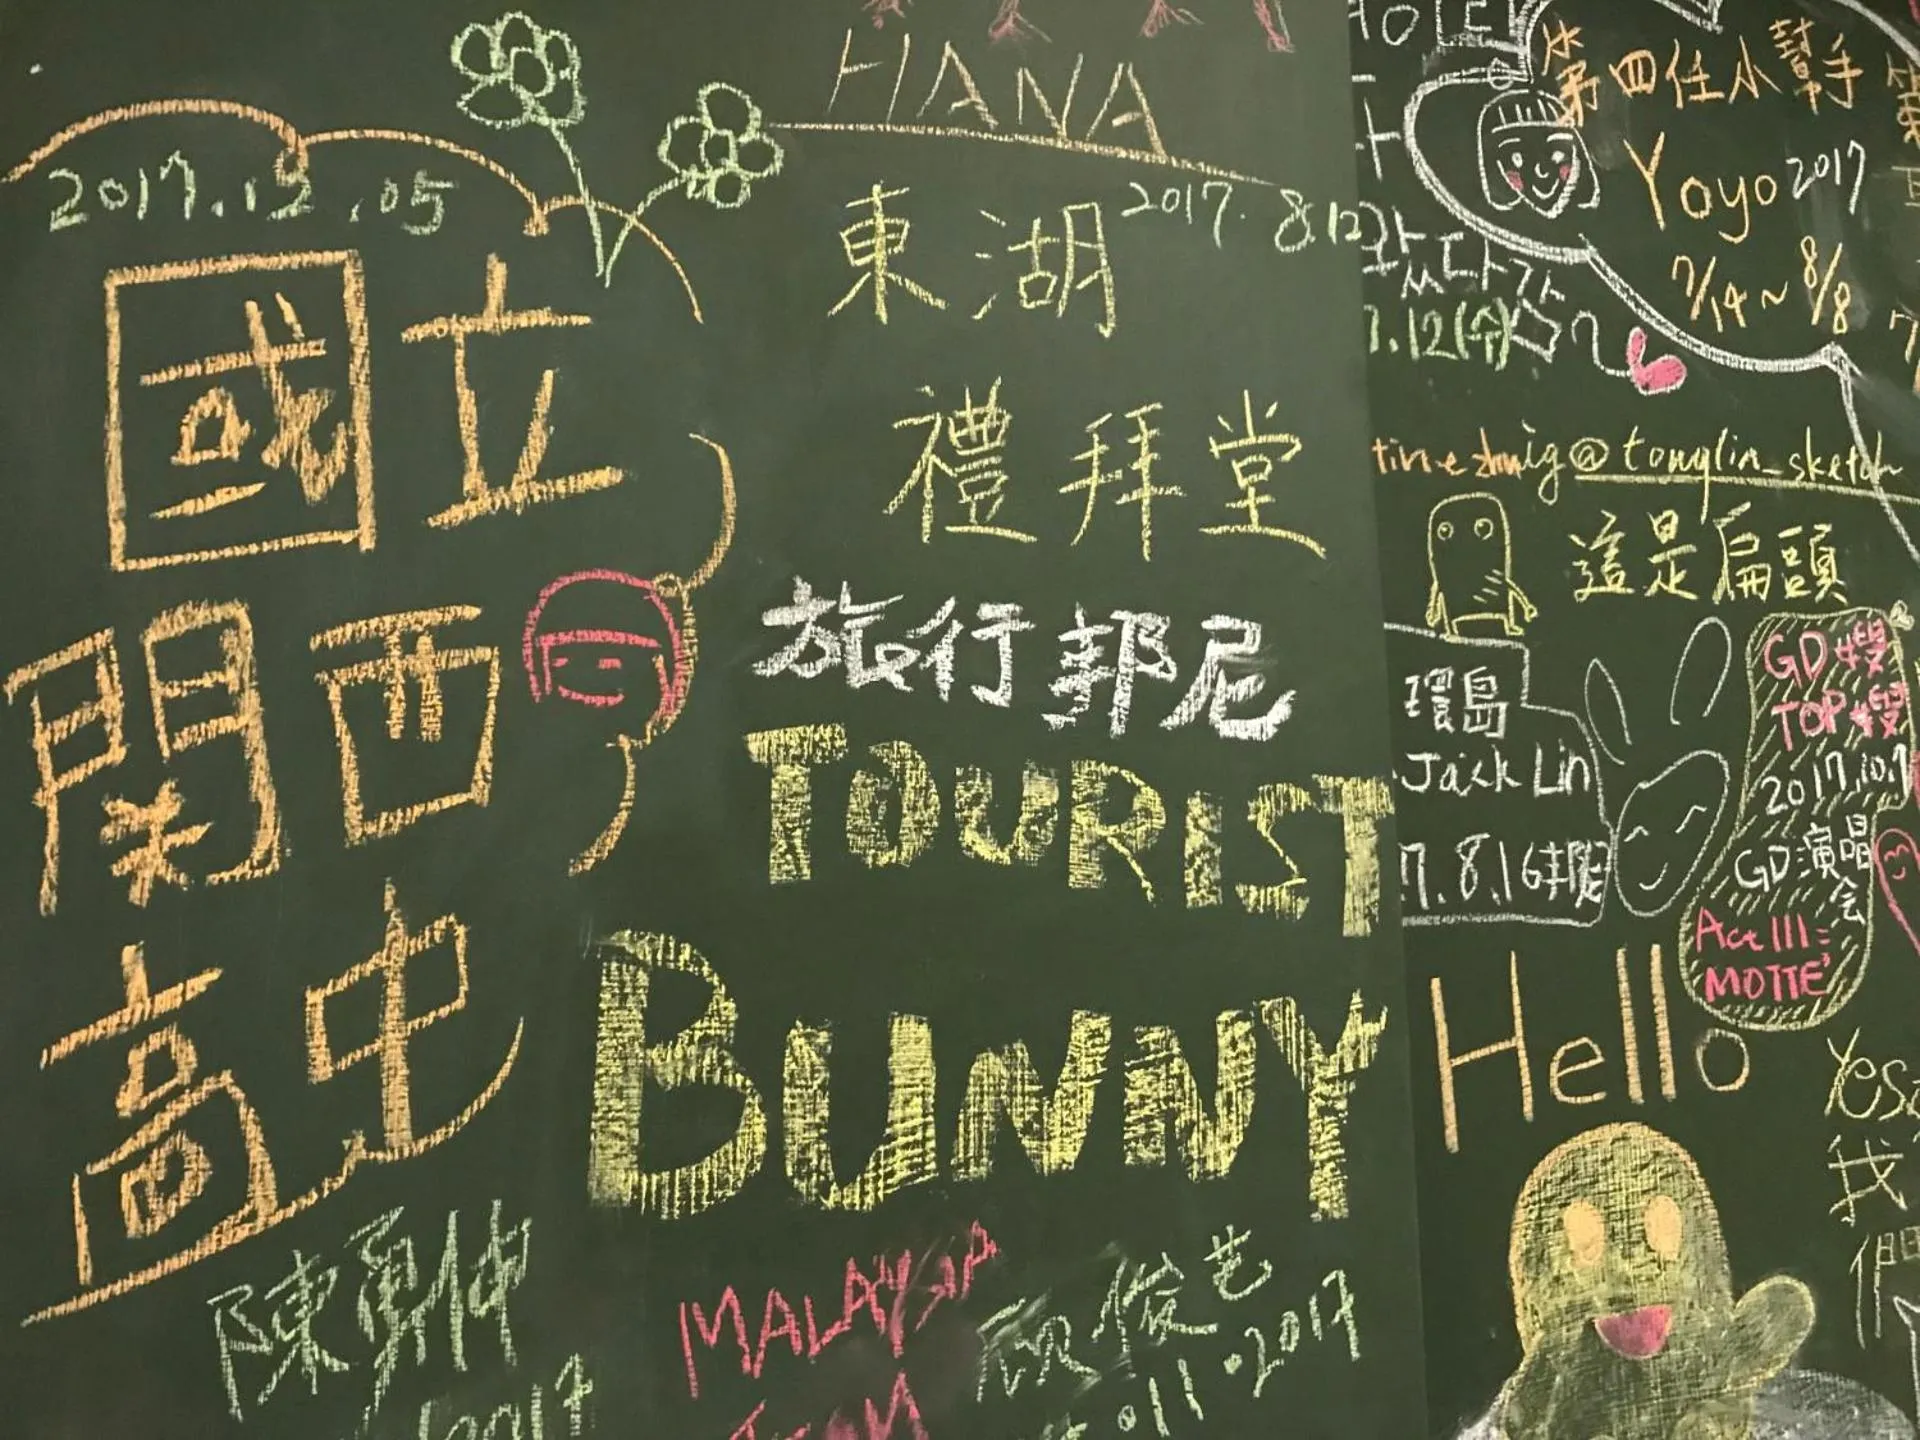 HANA
2017.12.05
國立
關西
高中
陳勇仲
2017
東湖
2017. 8.12
禮拜堂
旅行邦尼
TOURIST
BUNNY
MALAYSIA
TEAM
.11.2017
HOTEL
第四任小幫手
Yoyo 2017
7/14~8/8
왔다감
7.12(수)
@tonglin_sketch
這是扁頭
環島
Jack Lin
7.8.16
GD嫂
TOP嫂
2017.10.7
GD演唱
会
Act III:
MOTTE
Hello
Yes
我
們